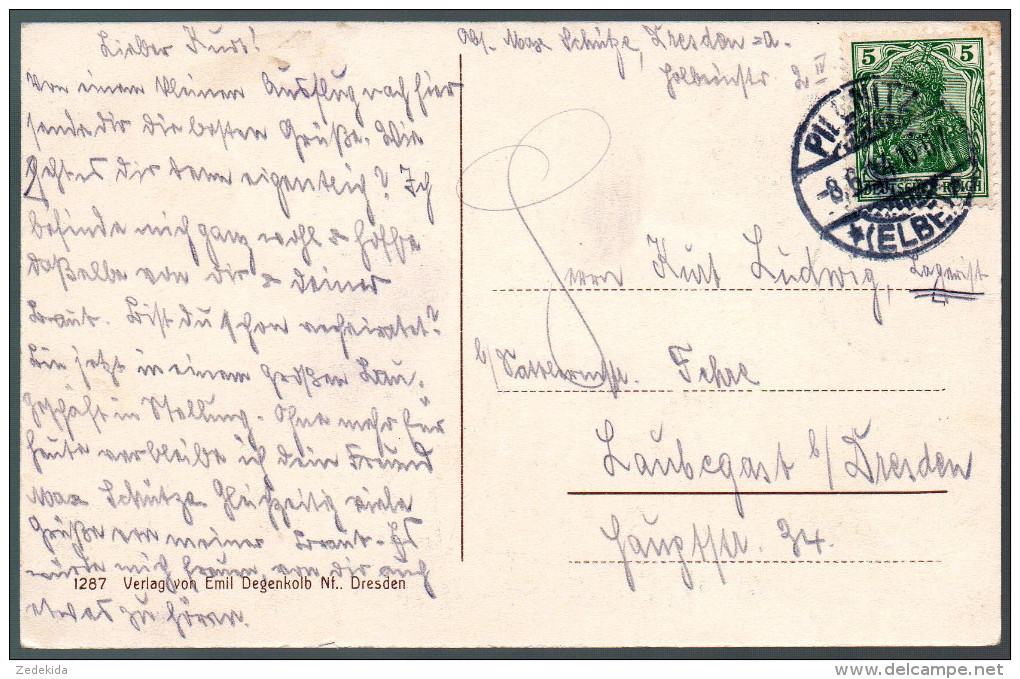 Lieber Kurt!
Von einem kleinen Ausflug nach hier
sende dir die besten Grüße. Wie
geht es dir denn eigentlich? Ich
befinde mich ganz wohl & hoffe
daßelbe von dir & deiner
Braut. Bist du schon verheiratet?
Bin jetzt in einem großen Bau-
geschäft in Stellung. Ohne mehr für
heute verbleibe ich dein Freund
Max Schütze. Gleichzeitig viele
Grüße von meiner Braut. Es
würde mich freuen von dir auch
etwas zu hören.
1287 Verlag von Emil Degenkolb Nf., Dresden
Abs. Max Schütze, Dresden-A.
Holbeinstr 2 IV
5 5
DEUTSCHES REICH
PILLNITZ
(ELBE)
Herrn Kurt Ludwig, Lagerist
b/ Fehre
Laubegast b/Dresden
Hauptstr. 34.
Zedekida
www.delcampe.net